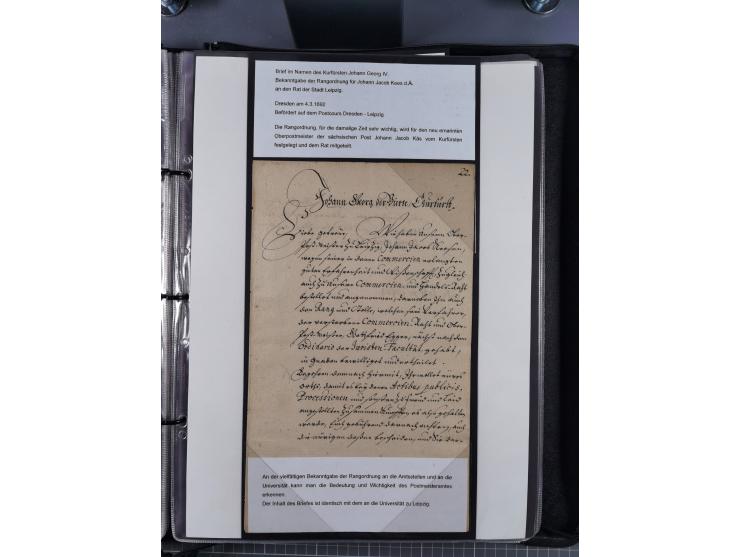 Brief im Namen des Kurfürsten Johann Georg IV.
Bekanntgabe der Rangordnung für Johann Jacob Kees d.Ä.
an den Rat der Stadt Leipzig.
Dresden am 4.3.1692
Befördert auf dem Postcours Dresden - Leipzig
Die Rangordnung, für die damalige Zeit sehr wichtig, wird für den neu ernannten
Oberpostmeister der sächsischen Post Johann Jacob Käs vom Kurfürsten
festgelegt und dem Rat mitgeteilt.
22.
Johann Georg der Vierte, Churfürst.
Liebe getreue, Wir haben Unsern Ober-
Post-Meister zu Leipzig, Johann Jacob Keesen,
wegen seiner in denen Commercien erlangten
guten Erfahrenheit und Wißenschafft, zugleich
auch zu Unserm Commercien- und Handels-Rath
bestellet und angenommen, darneben Ihm auch
den Rang und Stelle, welchen sein Vorfahrer,
der verstorbene Commercien-Rath und Ober-
Post-Meister, Gottfried Egger, nächst nach dem
Ordinario der Juristen Facultät gehabt,
in Gnaden bewilliget und ertheilet.
Begehren demnach hiermit, Ihr wollet eures
orths, damit es bey denen Actibus publicis,
Processionen und sonsten zu Freud und Leid
angestellten Zusammenkunfften, also gehalten
werde, Euch gebührend darnach achten, auch
die übrigen deßen bescheiden, und Sie dar-
An der vielfältigen Bekanntgabe der Rangordnung an die Amtsstellen und an die
Universität kann man die Bedeutung und Wichtigkeit des Postmeisteramtes
erkennen.
Der Inhalt des Briefes ist identisch mit dem an die Universität zu Leipzig.